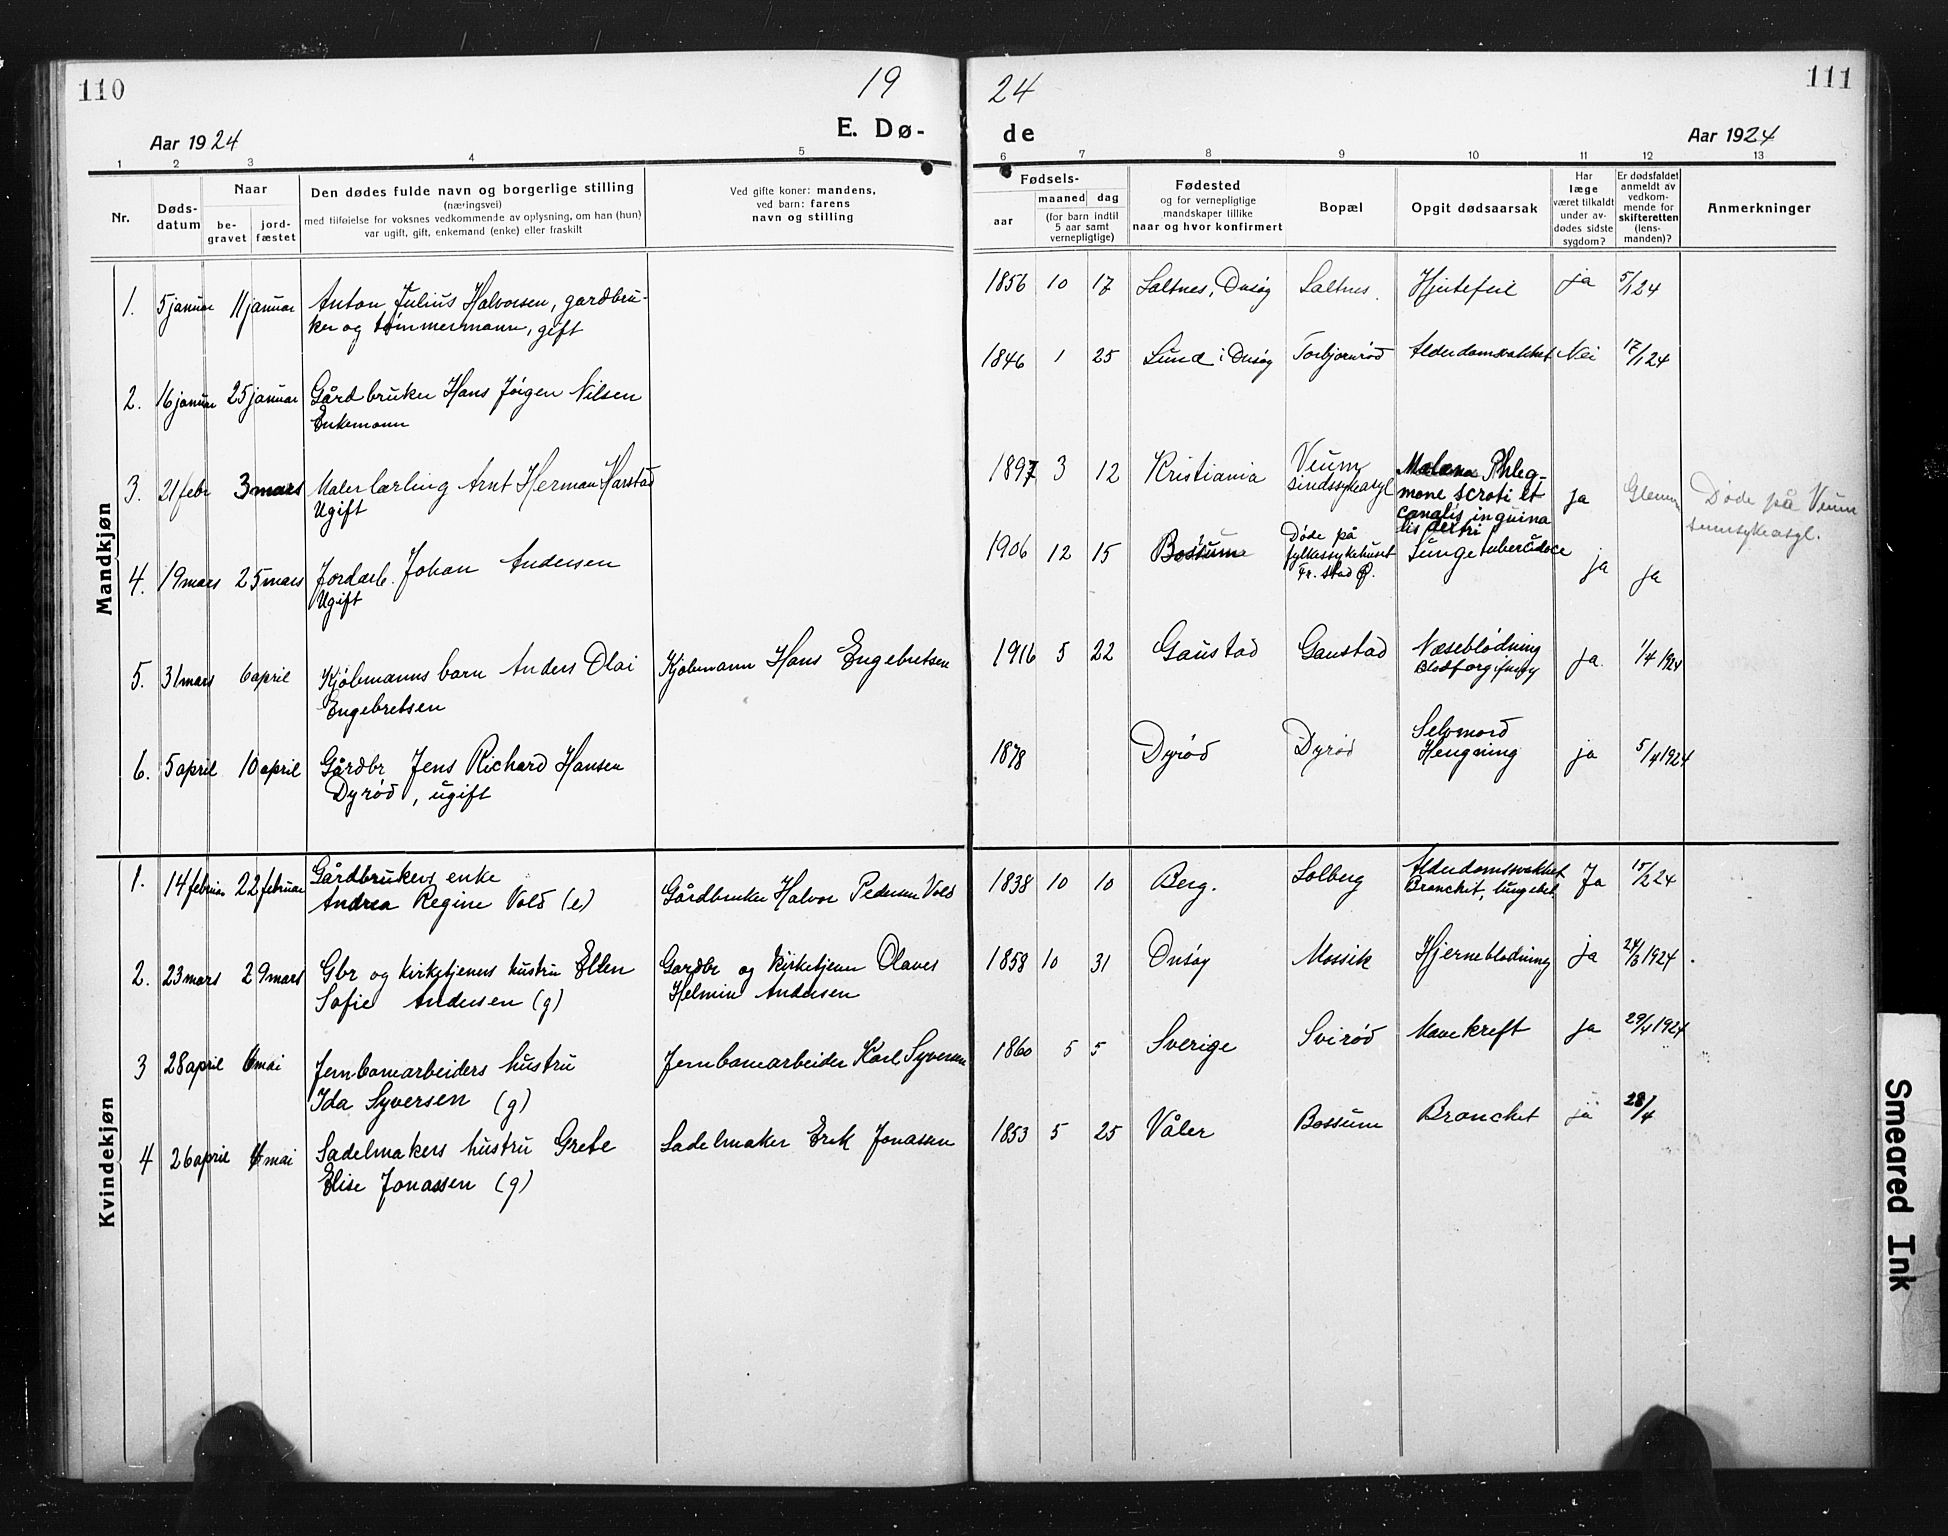 110
19
24
111
Aar 1924
E. Dø-
de
Aar 1924
1
2
3
4
5
6
7
8
9
10
11
12
13
Nr.
Døds-
datum
Naar
be-
gravet
jord-
fæstet
Den dødes fulde navn og borgerlige stilling
(næringsvei)
med tilføielse for voksnes vedkommende av oplysning, om han (hun)
var ugift, gift, enkemand (enke) eller fraskilt
Ved gifte koner: mandens,
ved barn: farens
navn og stilling
Fødsels-
aar
maaned
dag
(for barn indtil
5 aar samt
vernepligtige)
Fødested
og for vernepligtige
mandskaper tillike
naar og hvor konfirmert
Bopæl
Opgit dødsaarsak
Har
læge
været tilkaldt
under av-
dødes sidste
sygdom?
Er dødsfaldet
anmeldt av
vedkom-
mende for
skifteretten
(lens-
manden)?
Anmerkninger
Mandkjøn
1. 5 januar 11 januar Anton Julius Halvorsen, gardbru-
ker og tømmermann, gift
1856 10 17 Saltnes, Onsøy Saltnes. Hjertefeil ja 5/1 24
2. 16 januar 25 januar Gårdbruker Hans Jørgen Nilsen
Enkemann
1846 1 25 Lund i Onsøy Torbjørnrød Alderdomsvakhet Nei 17/1 24
3. 21 febr 3 mars Malerlærling Arnt Herman Harstad
Ugift
1897 3 12 Kristiania Veum
sindssykeasyl
Malæna Phleg-
mone scroti et
canalis inguina
lis dextri
ja Glemm Døde på Veum
sinnsykeasyl.
4. 19 mars 25 mars Jordarb. Johan Andersen
Ugift
1906 12 15 Bossum Døde på
fylkessykehuset
Fr. stad Ø.
Lungetuberculose ja ja
5. 31 mars 6 april Kjøbmanns barn Anders Olai
Engebretsen
Kjøbmann Hans Engebretsen
1916 5 22 Gaustad Gaustad Næseblødning
Blodforgiftning
ja 1/4 1924
6. 5 april 10 april Gårdbr Jens Richard Hansen
Dyrød, ugift
1878 Dyrød Dyrød Selvmord
Hengning
ja 5/4 1924
Kvindekjøn
1. 14 februar 22 februar Gårdbrukers enke
Andrea Regine Vold (e)
Gårdbruker Halvor Pedersen Vold
1838 10 10 Berg. Solberg Alderdomssvakhet
Bronchit, lungebet.
Ja 15/2 24
2. 23 mars 29 mars Gbr og kirketjeners hustru Ellen
Sofie Andersen (g)
Gardbr og kirketjener Olaves
Helmin Andersen
1858 10 31 Onsøy Mossik Hjerneblødning ja 24/3 1924.
3 28 april 6 mai Jernbanearbeiders hustru
Ida Syversen (g)
Jernbanearbeider Karl Syversen
1860 5 5 Sverige Svirød Mavekreft ja 29/4 1924
4 26 april 4 mai Sadelmakers hustru Grete
Elise Jonassen (g)
Sadelmaker Erik Jonassen
1853 5 25 Våler Bossum Bronchet ja 28/4
Smeared Ink